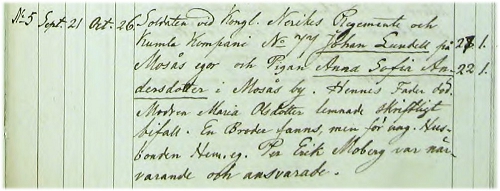 No 5 Sept. 21 Oct. 26. Soldaten vid Kongl. Nerikes Regemente och
Kumla Kompani No 77 Johan Lundell på 27 1.
Mosås egor och Pigan Anna Sofia An- 22 1.
dersdotter i Mosås by. Hennes Fader död.
Modren Maria Olsdotter lemnade skriftligt
bifall. En Broder fanns, men för ung. Hus-
bonden Nem.eg. Per Erik Moberg var när-
varande och ansvarade.